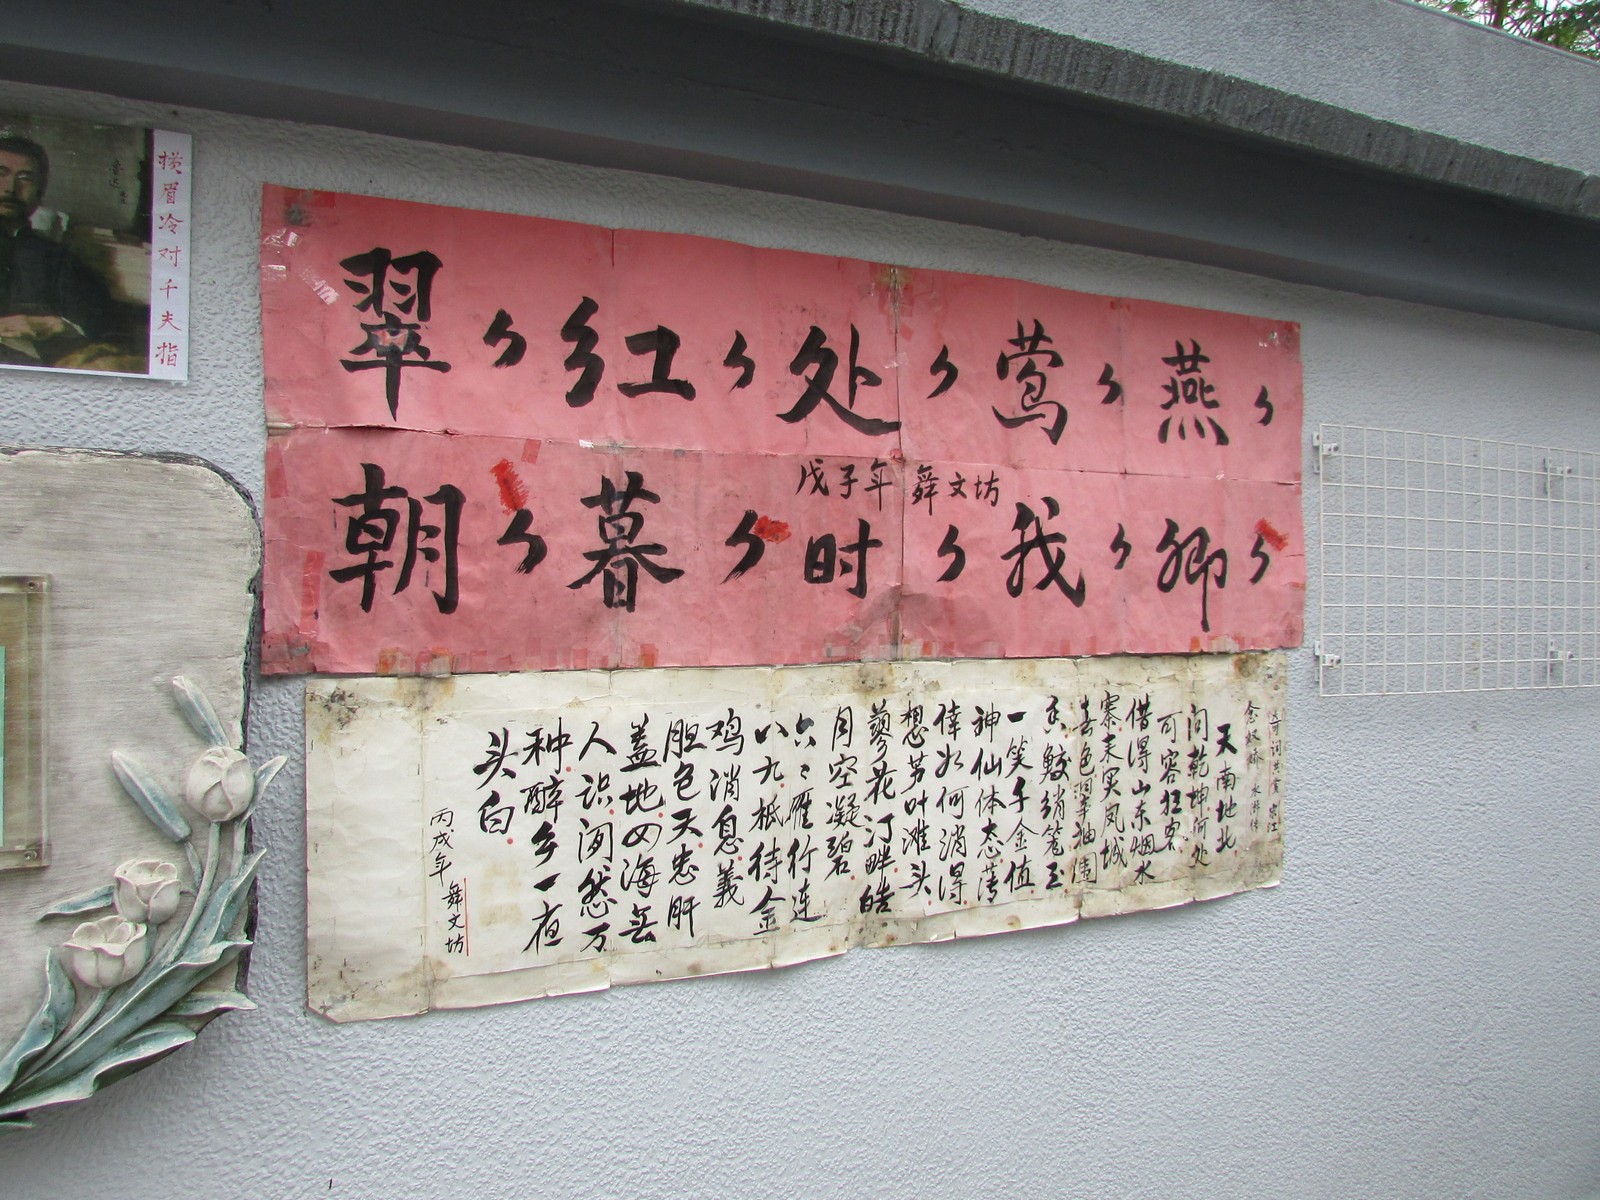 横眉冷对千夫指
翠々红々处々莺々燕々
戊子年 舞文坊
朝々暮々时々我々卿々
词共赏 宋江
念奴娇 水浒传
天南地北
问乾坤何处
可容狂客
借得山东烟水
寨来买凤城
春色翠袖围
香鲛绡笼玉
一笑千金值
神仙体态薄
倖如何消得
想芦叶滩头
蓼花汀畔皓
月空凝碧
六々雁行连
八九祇待金
鸡消息義
胆包天忠肝
盖地四海無
人识闲愁万
种醉乡一夜
头白
丙戌年 舞文坊